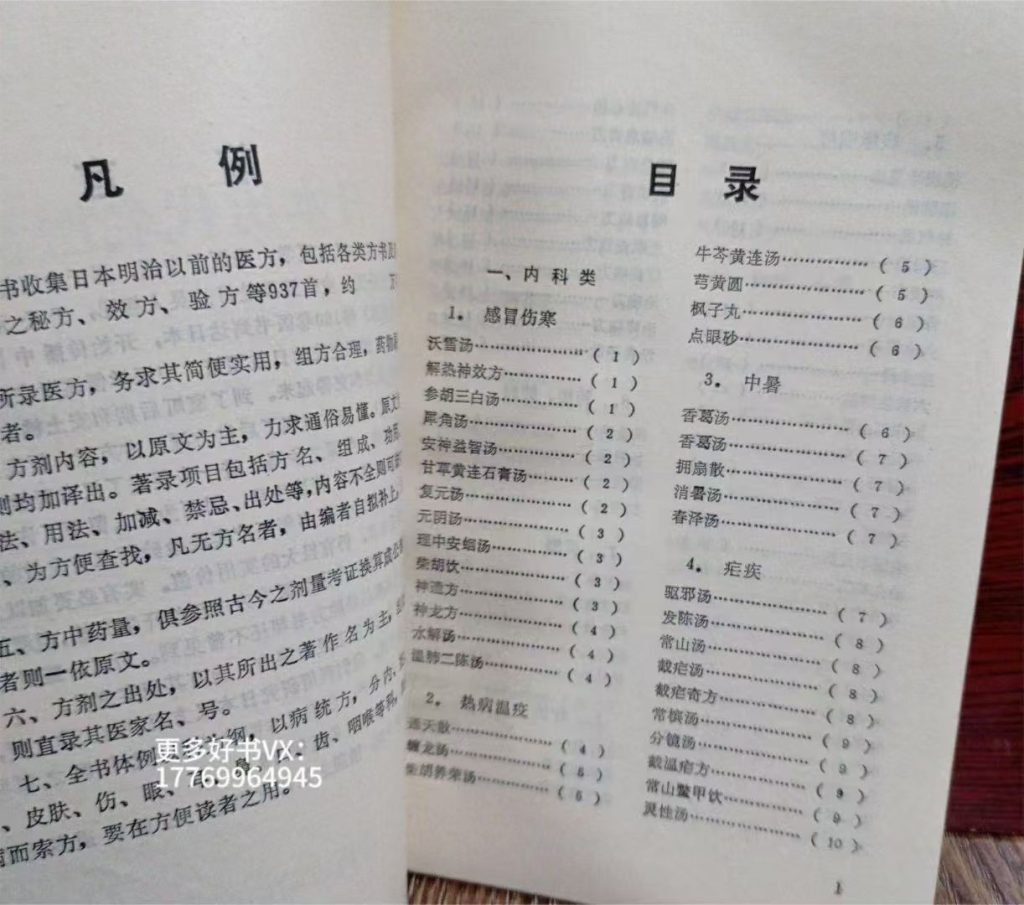 凡 例
书收集日本明治以前的医方，包括各类方书
之秘方、效方、验方等937首，约
所录医方，务求其简便实用，组方合理，药物
者。
方剂内容，以原文为主，力求通俗易懂。原文
则均加译出。著录项目包括方名、组成、功
法、用法、加减、禁忌、出处等，内容不全则可
、为方便查找，凡无方名者，由编者自拟补上
五、方中药量，俱参照古今之剂量考证换算成
者则一依原文。
六、方剂之出处，以其所出之著作名为主，
则直录其医家名、号。
七、全书体例 纲，以病统方，分内、
、皮肤、伤、眼、耳 齿、咽喉等科，
而索方，要在方便读者之用。
更多好书VX：
17769964945
目 录
一、内科类
1. 感冒伤寒
沃雪汤……………（1）
解热神效方…………（1）
参胡三白汤…………（1）
犀角汤……………（2）
安神益智汤…………（2）
甘草黄连石膏汤………（2）
复元汤……………（2）
元阴汤……………（3）
理中安蛔汤…………（3）
柴胡饮……………（3）
神造方……………（3）
神龙方……………（4）
水解汤……………（4）
温肺二陈汤…………（4）
2. 热病温疫
通天散……………（4）
蟠龙汤……………（5）
柴胡养荣汤…………（5）
牛芩黄连汤…………（5）
芎黄圆……………（5）
枫子丸……………（6）
点眼砂……………（6）
3. 中暑
香葛汤……………（6）
香葛汤……………（7）
拥扇散……………（7）
消暑汤……………（7）
春泽汤……………（7）
4. 疟疾
驱邪汤……………（7）
发陈汤……………（8）
常山汤……………（8）
截疟汤……………（8）
截疟奇方…………（8）
常槟汤……………（9）
分镜汤……………（9）
截温疟方…………（9）
常山鳖甲饮…………（9）
灵性汤……………（10）
1